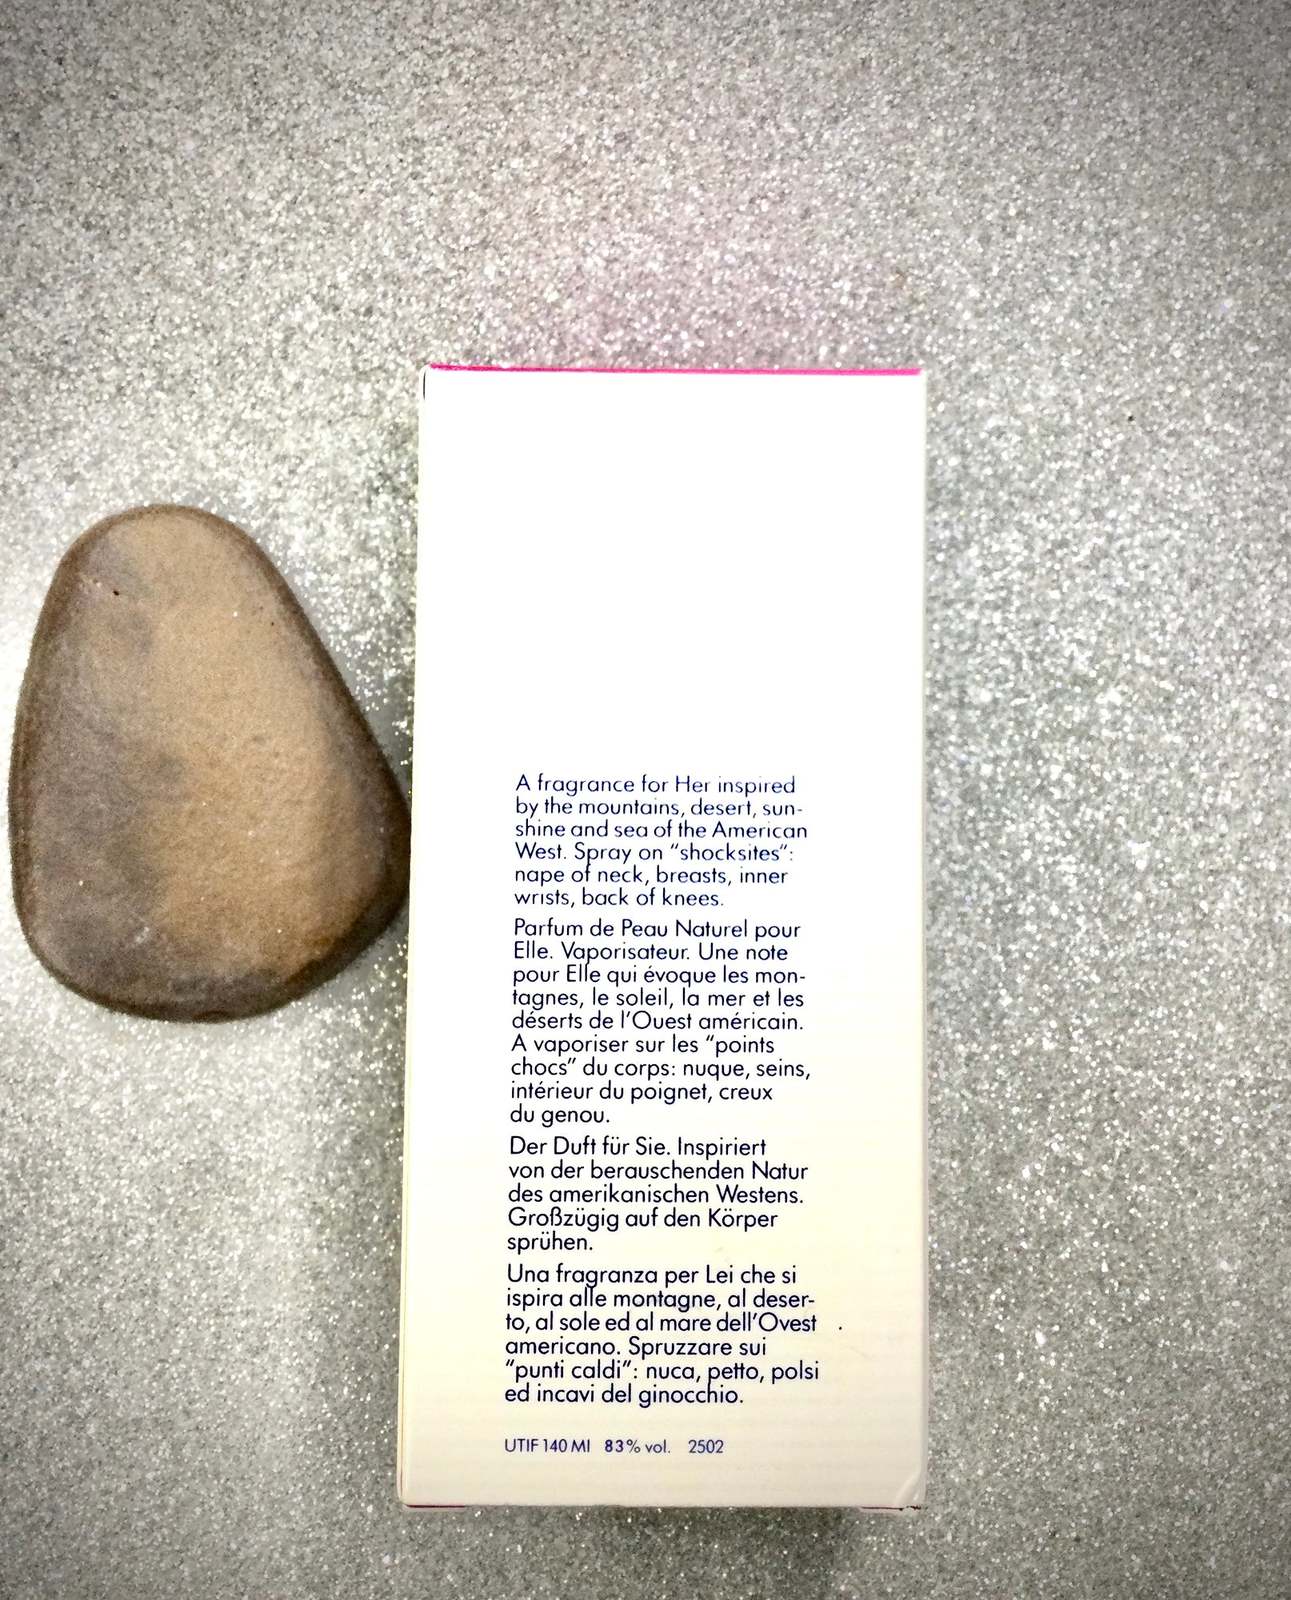 A fragrance for Her inspired
by the mountains, desert, sun-
shine and sea of the American
West. Spray on "shocksites":
nape of neck, breasts, inner
wrists, back of knees.
Parfum de Peau Naturel pour
Elle. Vaporisateur. Une note
pour Elle qui évoque les mon-
tagnes, le soleil, la mer et les
déserts de l'Ouest américain.
A vaporiser sur les "points
chocs" du corps: nuque, seins,
intérieur du poignet, creux
du genou.
Der Duft für Sie. Inspiriert
von der berauschenden Natur
des amerikanischen Westens.
Großzügig auf den Körper
sprühen.
Una fragranza per Lei che si
ispira alle montagne, al deser-
to, al sole ed al mare dell'Ovest
americano. Spruzzare sui
"punti caldi": nuca, petto, polsi
ed incavi del ginocchio.
UTIF 140 MI 83% vol. 2502